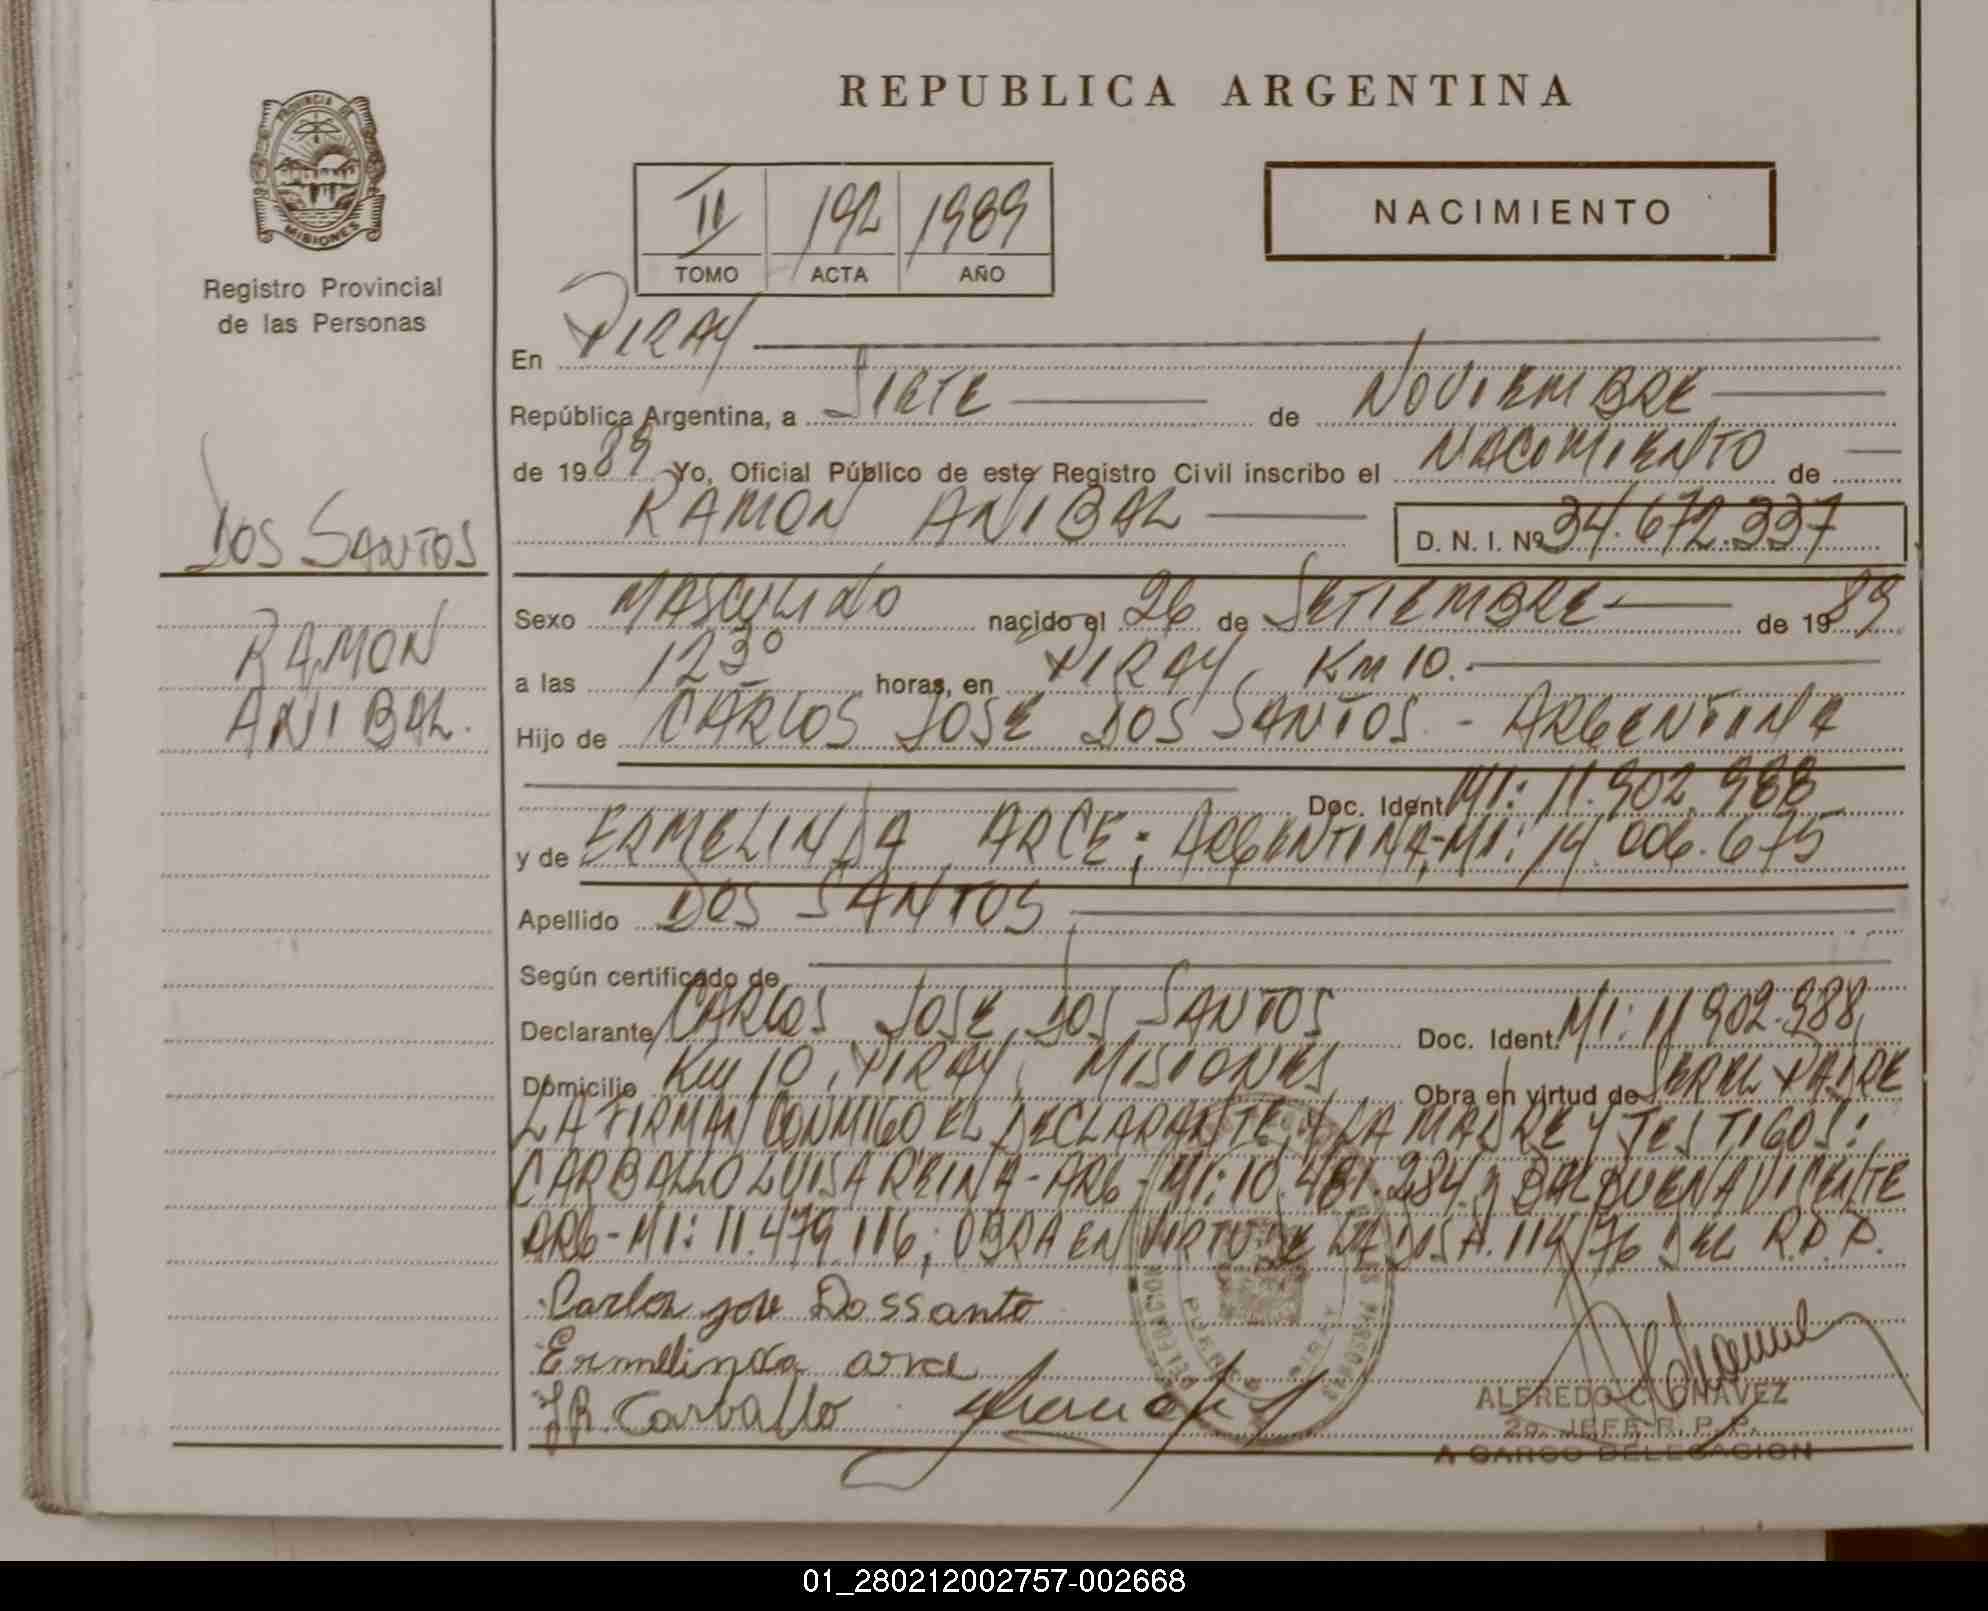 REPUBLICA ARGENTINA
PROVINCIA DE
MISIONES
Registro Provincial
de las Personas
II 192 1989
TOMO ACTA AÑO
NACIMIENTO
En PIRAY
República Argentina, a SIETE de NOVIEMBRE
de 1989 Yo, Oficial Público de este Registro Civil inscribo el NACIMIENTO de
RAMON ANIBAL D. N. I. Nº 34.672.337
DOS SANTOS
RAMON
ANIBAL.
Sexo MASCULINO nacido el 26 de SETIEMBRE de 1989
a las 12 30 horas, en PIRAY, Km 10.
Hijo de CARLOS JOSE DOS SANTOS - ARGENTINA
Doc. Ident. MI: 11.902.988
y de ERMELINDA ARCE; ARGENTINA-MI: 14.006.675
Apellido DOS SANTOS
Según certificado de
Declarante CARLOS JOSE DOS SANTOS Doc. Ident. MI: 11.902.988
Domicilio Km 10, PIRAY, MISIONES Obra en virtud de SER EL PADRE
LA FIRMAN CONMIGO EL DECLARANTE, LA MADRE Y TESTIGOS:
CARBALLO LUISA REINA-ARG-MI: 10.481.284 y BALBUENA VICENTE
ARG-MI: 11.479.116; OBRA EN VIRTUD DE LA DISP. 114/76 DEL R.P.P.
Carlos jose Dossanto
Ermelinda arce
LR Carballo
ALFREDO C. CHAVEZ
2o. JEFE R. P. P.
A CARGO DELEGACION
01_280212002757-002668